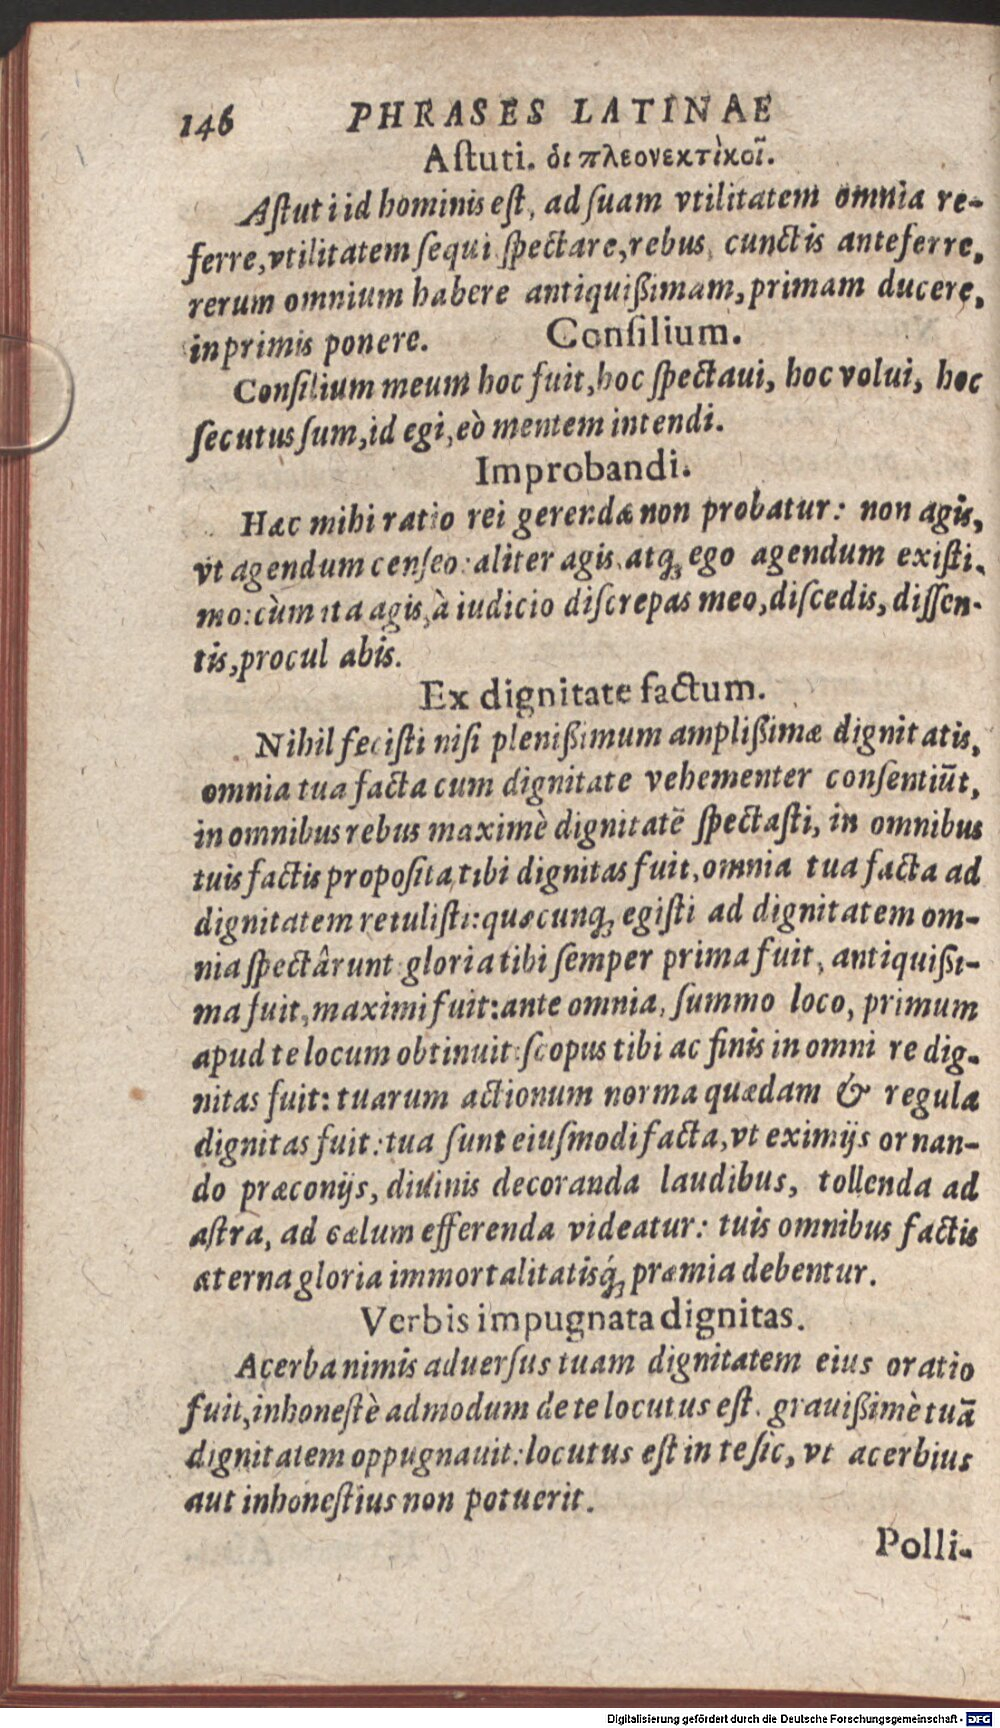 146 PHRASES LATINAE
Astuti. δι πλεονεκτὶκοῖ.
Astuti id hominis est, ad suam vtilitatem omnia re-
ferre, vtilitatem sequi spectare, rebus cunctis anteferre,
rerum omnium habere antiquißimam, primam ducere,
inprimis ponere. Consilium.
Consilium meum hoc fuit, hoc spectaui, hoc volui, hoc
secutus sum, id egi, eò mentem intendi.
Improbandi.
Hæc mihi ratio rei gerendæ non probatur: non agis,
vt agendum censeo: aliter agis, atq; ego agendum existi-
mo: cùm ita agis, à iudicio discrepas meo, discedis, dissen-
tis, procul abis.
Ex dignitate factum.
Nihil fecisti nisi plenißimum amplißimæ dignitatis,
omnia tua facta cum dignitate vehementer consentiūt,
in omnibus rebus maximè dignitatē spectasti, in omnibus
tuis factis proposita tibi dignitas fuit, omnia tua facta ad
dignitatem retulisti: quæcunq; egisti ad dignitatem om-
nia spectârunt gloria tibi semper prima fuit, antiquißi-
ma fuit, maximi fuit: ante omnia, summo loco, primum
apud te locum obtinuit: scopus tibi ac finis in omni re dig-
nitas fuit: tuarum actionum norma quædam & regula
dignitas fuit: tua sunt eiusmodi facta, vt eximijs ornan-
do præconijs, diuinis decoranda laudibus, tollenda ad
astra, ad cælum efferenda videatur: tuis omnibus factis
æterna gloria immortalitatisq́; præmia debentur.
Verbis impugnata dignitas.
Acerba nimis aduersus tuam dignitatem eius oratio
fuit, inhonestè admodum de te locutus est. grauißimè tuā
dignitatem oppugnauit: locutus est in te sic, vt acerbius
aut inhonestius non potuerit.
Polli-
Digitalisierung gefördert durch die Deutsche Forschungsgemeinschaft - DFG